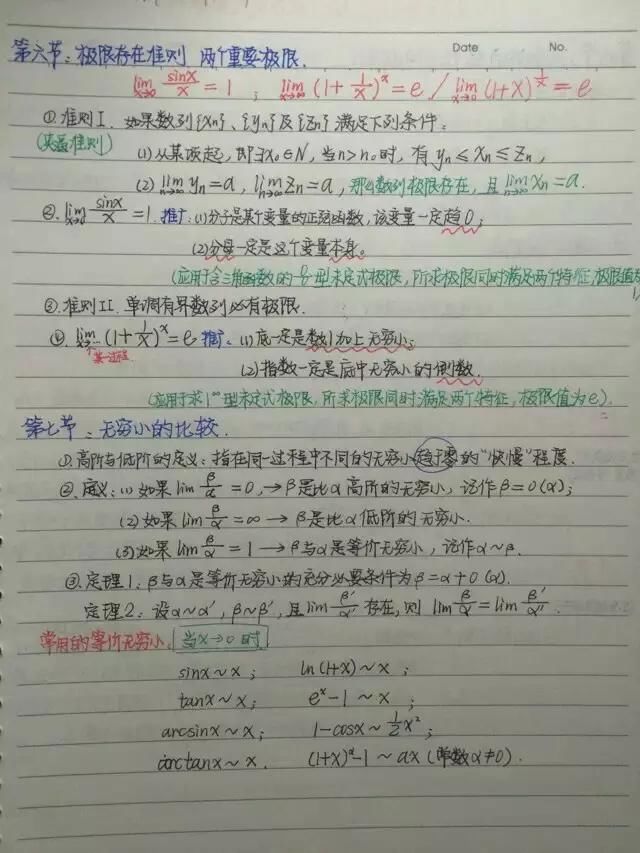 Date No.
第六节：极限存在准则 两个重要极限.
lim x→0 sinx/x = 1 ; lim x→∞ (1+1/x)^x = e / lim x→0 (1+x)^(1/x) = e
①准则I. 如果数列{Xn}、{yn}及{Zn}满足下列条件:
(夹逼准则) (1)从某项起,即∃x₀∈N,当n>n₀时,有yn≤xn≤zn,
(2) lim n→∞ yn=a, lim n→∞ zn=a, 那么数列极限存在,且 lim n→∞ xn=a.
②. lim x→0 sinx/x =1. 推广:(1)分子是某个变量的正弦函数,该变量一定趋0;
(2)分母一定是这个变量本身。
(应用于含三角函数的0/0型未定式极限,所求极限同时满足两个特征,极限值为1)
③.准则II. 单调有界数列必有极限.
④. lim x→ (1+1/x)^x = e. 推广:(1)底一定是数1加上无穷小;
某一过程
(2)指数一定是底中无穷小的倒数.
(应用于求1^∞型未定式极限,所求极限同时满足两个特征,极限值为e).
第七节：无穷小的比较.
①.高阶与低阶的定义:指在同一过程中不同的无穷小趋于零的“快慢”程度.
②.定义:(1)如果lim β/α = 0, → β是比α高阶的无穷小,记作β=0(α);
(2)如果lim β/α = ∞ → β是比α低阶的无穷小.
(3)如果lim β/α = 1 → β与α是等价无穷小,记作α~β.
③.定理1:β与α是等价无穷小的充分必要条件为β=α+0(α).
定理2:设α~α′,β~β′,且lim β′/α′ 存在,则 lim β/α = lim β′/α′.
常用的等价无穷小, 当x→0时
sinx~x; ln(1+x)~x;
tanx~x; e^x-1~x;
arcsinx~x; 1-cosx~1/2x²;
arctanx~x. (1+x)^α-1~αx(常数α≠0).